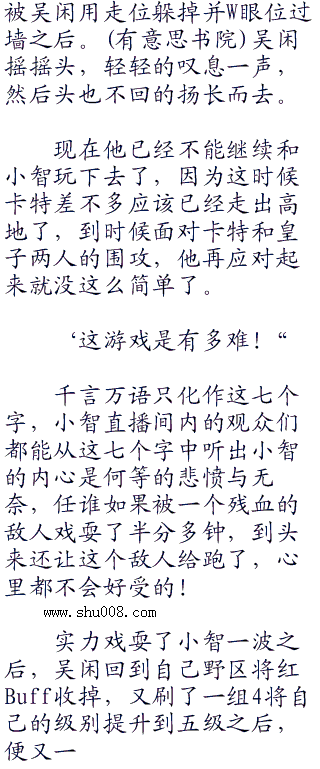 被吴闲用走位躲掉并W眼位过
墙之后。(有意思书院)吴闲
摇摇头，轻轻的叹息一声，
然后头也不回的扬长而去。
现在他已经不能继续和
小智玩下去了，因为这时候
卡特差不多应该已经走出高
地了，到时候面对卡特和皇
子两人的围攻，他再应对起
来就没这么简单了。
‘这游戏是有多难！“
千言万语只化作这七个
字，小智直播间内的观众们
都能从这七个字中听出小智
的内心是何等的悲愤与无
奈，任谁如果被一个残血的
敌人戏耍了半分多钟，到头
来还让这个敌人给跑了，心
里都不会好受的！
www.shu008.com
实力戏耍了小智一波之
后，吴闲回到自己野区将红
Buff收掉，又刷了一组4将自
己的级别提升到五级之后，
便又一